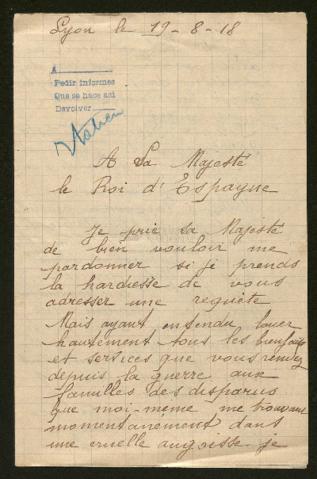 Lyon le 19-8-18
A
Pedir informes
Que se hace así
Devolver
A Sa Majesté
le Roi d'Espagne
Je prie sa Majesté
de bien vouloir me
pardonner si je prends
la hardiesse de vous
adresser une requête
Mais ayant entendu louer
hautement tous les bienfaits
et services que vous rendez
depuis la guerre aux
familles des disparus
que moi-même me trouvant
momentanément dans
une cruelle angoisse je